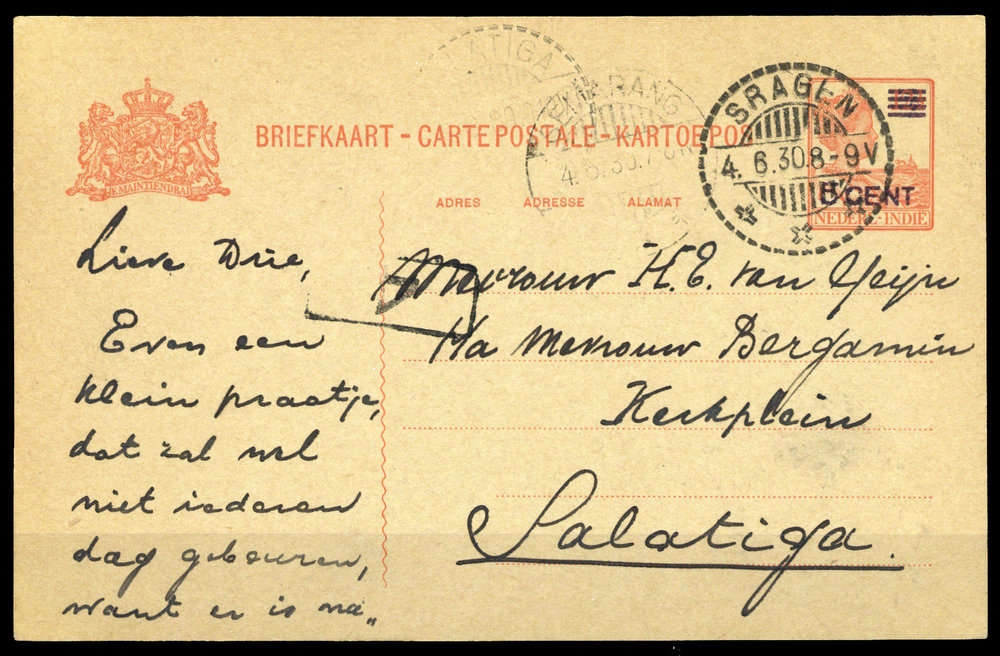 SALATIGA
SEMARANG
4.6.30.7
SRAGEN
4. 6.30.8-9V
5 CENT
NEDERL.-INDIE
JE MAINTIENDRAI
BRIEFKAART - CARTE POSTALE - KARTOEPOS
ADRES ADRESSE ALAMAT
Lieve Due,
Even een
klein praatje,
dat zal wel
niet iederen
dag gebeuren,
want er is na„
Mevrouw H. E. van
p/a Mevrouw Bergamin
Kerkplein
Salatiga.